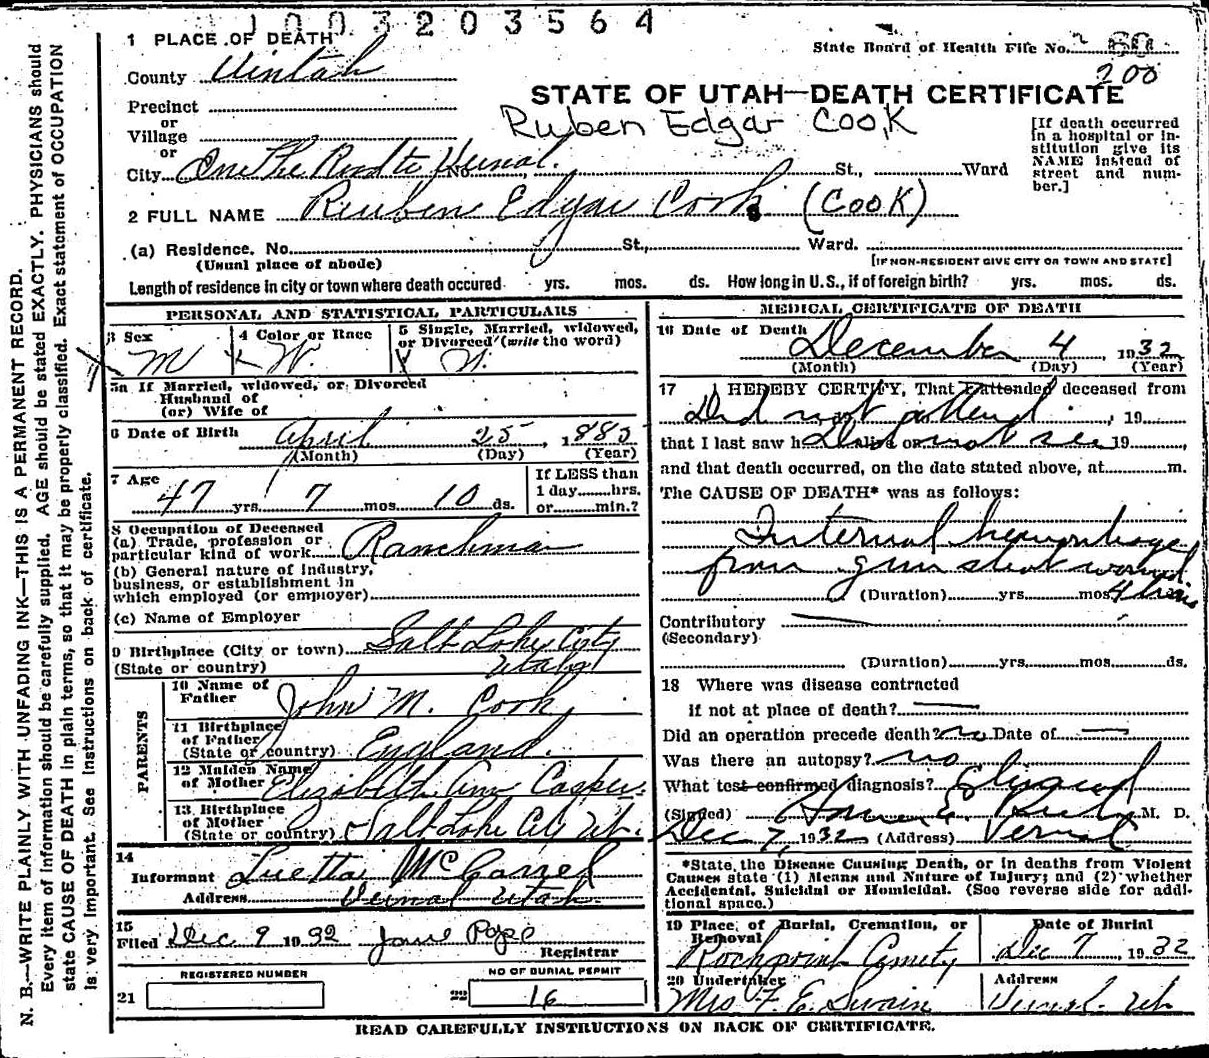 1003203564
1 PLACE OF DEATH
State Board of Health File No. 60
200
County Uintah
STATE OF UTAH—DEATH CERTIFICATE
Precinct
or
Village
or
Ruben Edgar COOK
[If death occurred in a hospital or institution give its NAME instead of street and number.]
City One The Road to Vernal. No. St., Ward
2 FULL NAME Reuben Edgar Cook (COOK)
(a) Residence. No. St., Ward.
(Usual place of abode) [IF NON-RESIDENT GIVE CITY OR TOWN AND STATE]
Length of residence in city or town where death occured yrs. mos. ds. How long in U.S., if of foreign birth? yrs. mos. ds.
PERSONAL AND STATISTICAL PARTICULARS
3 Sex M
4 Color or Race W.
5 Single, Married, widowed, or Divorced (write the word)
5a If Married, widowed, or Divorced
Husband of
(or) Wife of
6 Date of Birth April 25, 1885
(Month) (Day) (Year)
7 Age
47 yrs. 7 mos. 10 ds.
If LESS than
1 day......hrs.
or......min.?
8 Occupation of Deceased
(a) Trade, profession or
particular kind of work Ranchman
(b) General nature of industry,
business, or establishment in
which employed (or employer)
(c) Name of Employer
9 Birthplace (City or town) Salt Lake City
(State or country) Utah
PARENTS
10 Name of
Father John M. Cook
11 Birthplace
of Father
(State or country) England.
12 Maiden Name
of Mother Elizabeth Ann Casper
13 Birthplace
of Mother
(State or country) Salt Lake City Ut.
14
Informant Luetta McConnel
Address Vernal Utah
15
Filed Dec 9 1932 Jane Pope
Registrar
REGISTERED NUMBER
21
NO OF BURIAL PERMIT
22 16
MEDICAL CERTIFICATE OF DEATH
16 Date of Death
December 4, 1932
(Month) (Day) (Year)
17 I HEREBY CERTIFY, That I attended deceased from
Did not attend, 19
that I last saw h alive on Did not see 19
and that death occurred, on the date stated above, at m.
The CAUSE OF DEATH* was as follows:
Internal hemorrhage
from gun shot wound
(Duration) yrs. mos. 4 hrs
Contributory
(Secondary)
(Duration) yrs. mos. ds.
18 Where was disease contracted
if not at place of death?
Did an operation precede death? no Date of
Was there an autopsy? no
What test confirmed diagnosis?
(Signed) M. D.
Dec 7, 1932 (Address) Vernal
*State the Disease Causing Death, or in deaths from Violent
Causes state (1) Means and Nature of Injury; and (2) whether
Accidental, Suicidal or Homicidal. (See reverse side for addi-
tional space.)
19 Place of Burial, Cremation, or
Removal
Rockpoint Cemety
Date of Burial
Dec 7, 1932
20 Undertaker
Mrs F. E. Swain
Address
Vernal. Ut
READ CAREFULLY INSTRUCTIONS ON BACK OF CERTIFICATE.
N. B.—WRITE PLAINLY WITH UNFADING INK—THIS IS A PERMANENT RECORD.
Every item of information should be carefully supplied. AGE should be stated EXACTLY. PHYSICIANS should
state CAUSE OF DEATH in plain terms, so that it may be properly classified. Exact statement of OCCUPATION
is very important. See instructions on back of certificate.